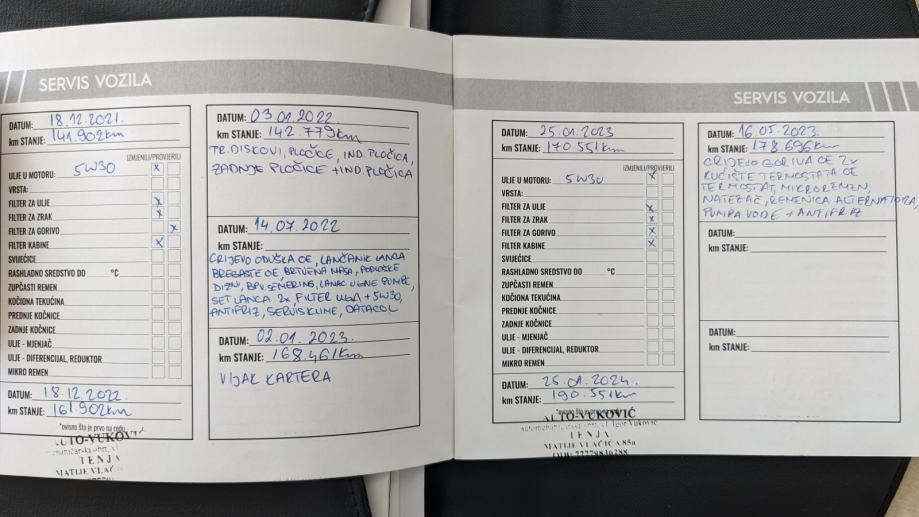 SERVIS VOZILA
DATUM: 18.12.2021.
km STANJE: 141.902km
IZMJENILI/PROVJERILI
ULJE U MOTORU: 5W30 x
VRSTA:
FILTER ZA ULJE x
FILTER ZA ZRAK x
FILTER ZA GORIVO x
FILTER KABINE x
SVIJEĆICE
RASHLADNO SREDSTVO DO °C
ZUPČASTI REMEN
KOČIONA TEKUĆINA
PREDNJE KOČNICE
ZADNJE KOČNICE
ULJE - MJENJAČ
ULJE - DIFERENCIJAL, REDUKTOR
MIKRO REMEN
DATUM: 18.12.2022.
km STANJE: 161.902km
*ovisno što je prvo na redu
AUTO-VUKOVIĆ
TENJA
DATUM: 03.01.2022.
km STANJE: 142.779km
PR.DISKOVI, PLOČICE, IND. PLOČICA,
ZADNJE PLOČICE + IND. PLOČICA
DATUM: 14.07.2022
km STANJE:
CRIJEVO ODUŠKA OE, LANČANIK LANCA
BREGASTE OE, BRTVENA MASA, PODLOŠKE
DIZNI, BRV. SEMERING, LANAC ULJNE PUMPE,
SET LANCA 2x, FILTER ULJA + 5W30,
ANTIFRIZ, SERVIS KLIME, DATACOL
DATUM: 02.01.2023.
km STANJE: 168.461km
VIJAK KARTERA
SERVIS VOZILA
DATUM: 25.01.2023
km STANJE: 170 551km
IZMJENILI/PROVJERILI
ULJE U MOTORU: 5W30 x
VRSTA:
FILTER ZA ULJE x
FILTER ZA ZRAK x
FILTER ZA GORIVO x
FILTER KABINE x
SVIJEĆICE
RASHLADNO SREDSTVO DO °C
ZUPČASTI REMEN
KOČIONA TEKUĆINA
PREDNJE KOČNICE
ZADNJE KOČNICE
ULJE - MJENJAČ
ULJE - DIFERENCIJAL, REDUKTOR
MIKRO REMEN
DATUM: 25.01.2024.
km STANJE: 190.551km
*ovisno što je prvo na redu
AUTO-VUKOVIĆ
Igor Vuković
TENJA
MATIJE VLAČIĆA 85a
DATUM: 16.05.2023.
km STANJE: 178 696km
CRIJEVO GORIVA OE 2x
KUĆIŠTE TERMOSTATA OE
TERMOSTAT, MIKROREMEN,
NATEZAČ, REMENICA ALTERNATORA,
PUMPA VODE + ANTIFRIZ
DATUM:
km STANJE:
DATUM:
km STANJE: